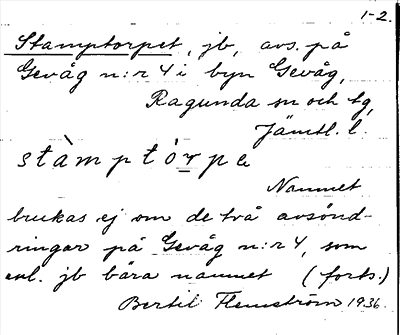 1-2.
Stamptorpet, jb, avs. på
Gevåg n:r 4 i byn Gevåg,
Ragunda sn och tg,
Jämtl. l.
stàmptórpe
Namnet
brukas ej om de två avsönd-
ringar på Gevåg n:r 4, som
enl. jb bära namnet (forts.)
Bertil Flemström 1936.